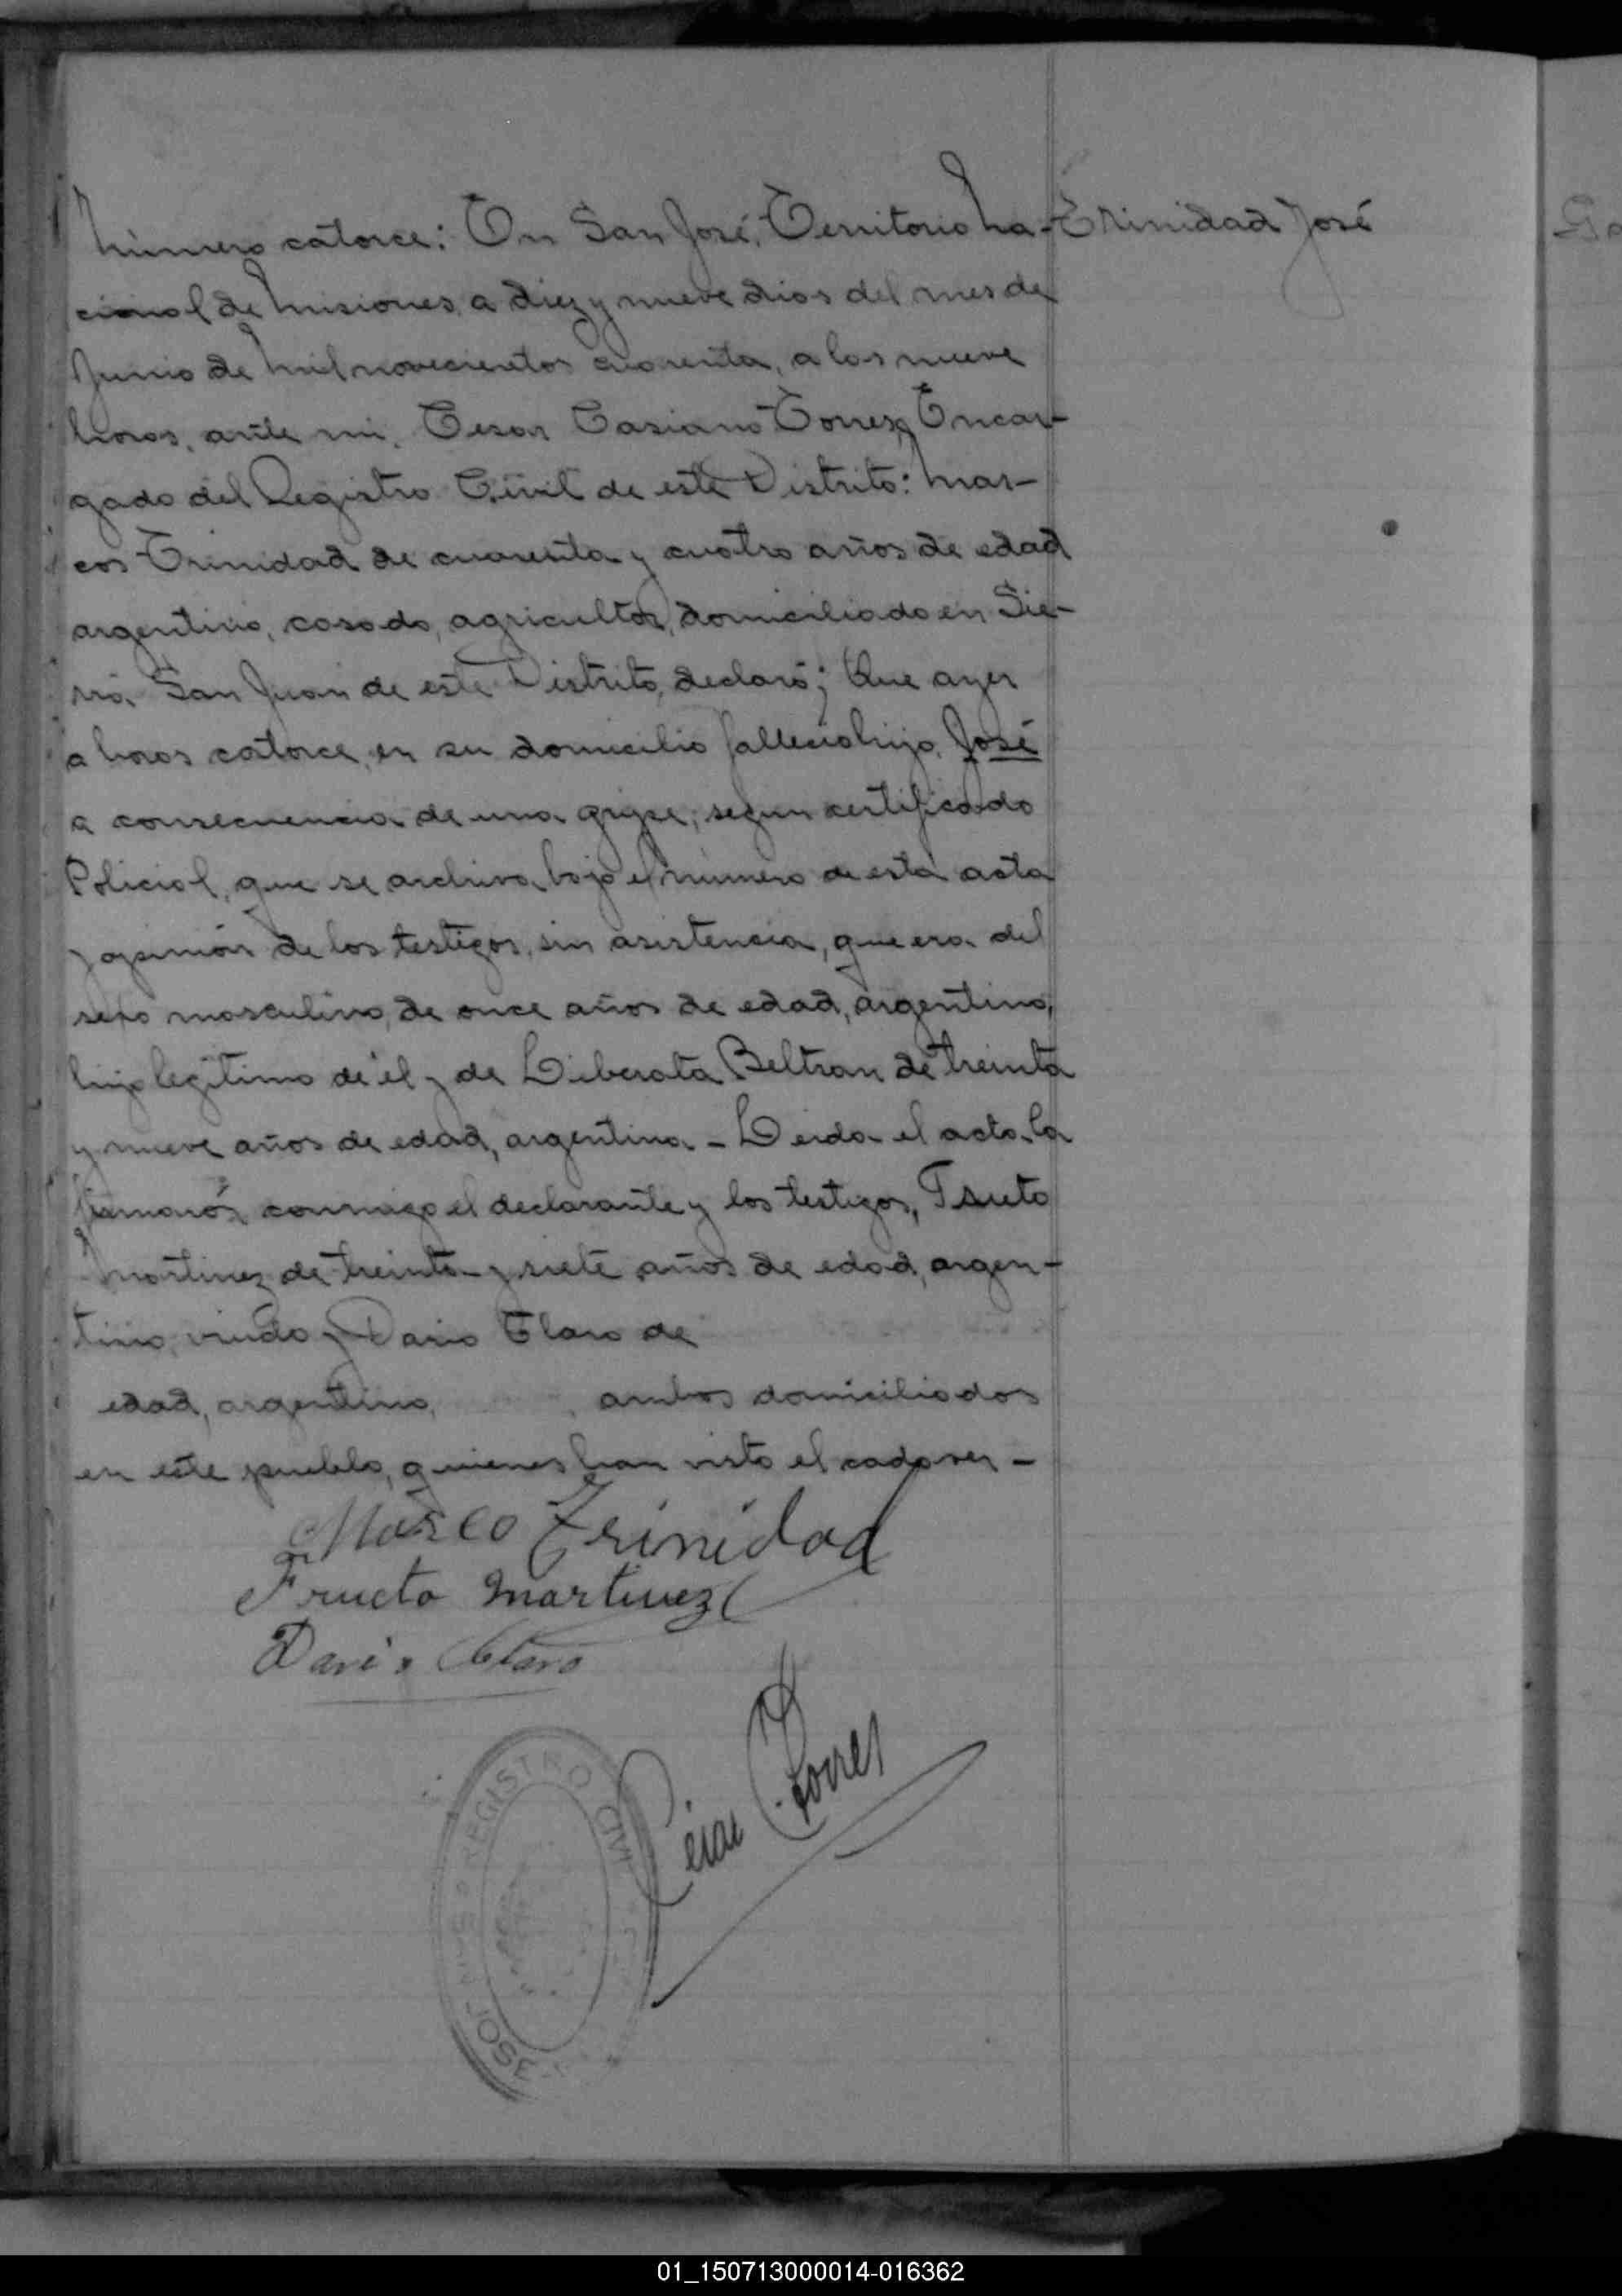 Número catorce: En San José, Territorio Na-
cional de Misiones, a diez y nueve dias del mes de
Junio de mil novecientos cuarenta, a las nueve
horas, ante mi, Cesar Casiano Torres, Encar-
gado del Registro Civil de este Distrito: Mar-
cos Trinidad de cuarenta y cuatro años de edad
argentino, casado, agricultor, domiciliado en Sie-
rra San Juan de este Distrito, declaró; Que ayer
a horas catorce, en su domicilio fallecio hijo, José
a consecuencia de una gripe; segun certificado
Policial, que se archiva bajo el número de esta acta
y opinión de los testigos, sin asistencia, que era del
sexo masculino, de once años de edad, argentino,
hijo legitimo de él y de Liberata Beltran de treinta
y nueve años de edad, argentina - Leida el acta, la
firmarón conmigo el declarante y los testigos,
Martinez de treinta y siete años de edad, argen-
tino, viudo y Dario Claro de
edad, argentino, ambos domiciliados
en este pueblo, quienes han visto el cadaver -
Trinidad José
Marco Trinidad
Fructo Martinez
Dario Claro
Cesar Torres
REGISTRO CIVIL
SAN JOSE
01_150713000014-016362